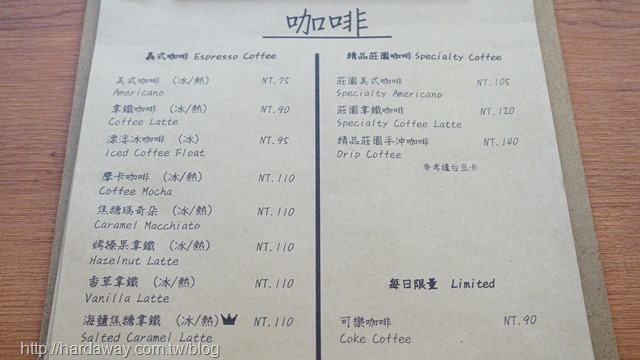 咖啡
義式咖啡 Espresso Coffee
美式咖啡 (冰/熱) NT.75
Americano
拿鐵咖啡 (冰/熱) NT.90
Coffee Latte
漂浮冰咖啡 (冰) NT.95
Iced Coffee Float
摩卡咖啡 (冰/熱) NT.110
Coffee Mocha
焦糖瑪奇朵 (冰/熱) NT.110
Caramel Macchiato
烤榛果拿鐵 (冰/熱) NT.110
Hazelnut Latte
香草拿鐵 (冰/熱) NT.110
Vanilla Latte
海鹽焦糖拿鐵 (冰/熱) NT.110
Salted Caramel Latte
精品莊園咖啡 Specialty Coffee
莊園美式咖啡 NT.105
Specialty Americano
莊園拿鐵咖啡 NT.120
Specialty Coffee Latte
精品莊園手沖咖啡 NT.140
Drip Coffee
參考櫃台豆卡
每日限量 Limited
可樂咖啡 NT.90
Coke Coffee
http://hardaway.com.tw/blog